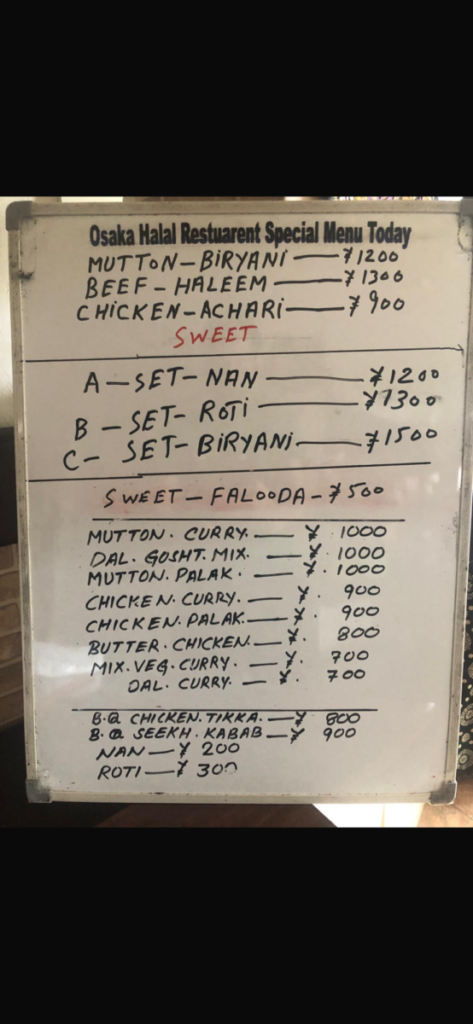 Osaka Halal Restuarent Special Menu Today
MUTTON-BIRYANI — ¥1200
BEEF-HALEEM — ¥1300
CHICKEN-ACHARI — ¥900
SWEET
A-SET-NAN — ¥1200
B-SET-ROTI — ¥1300
C-SET-BIRYANI — ¥1500
SWEET-FALOODA-¥500
MUTTON. CURRY. — ¥. 1000
DAL. GOSHT. MIX. — ¥. 1000
MUTTON. PALAK. — ¥. 1000
CHICKEN. CURRY. — ¥. 900
CHICKEN. PALAK. — ¥. 900
BUTTER. CHICKEN. — ¥. 800
MIX. VEG. CURRY. — ¥. 700
DAL. CURRY. — ¥. 700
B.Q CHICKEN. TIKKA. — ¥ 800
B.Q SEEKH. KABAB — ¥ 900
NAN — ¥ 200
ROTI — ¥ 300